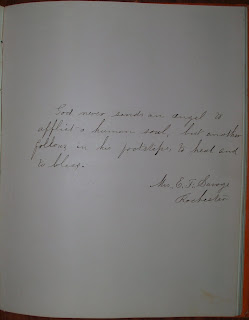 God never sends an angel to
afflict a human soul, but another
follows in his footsteps to heal and
to bless.
Mrs. E. T. Savage
Rochester